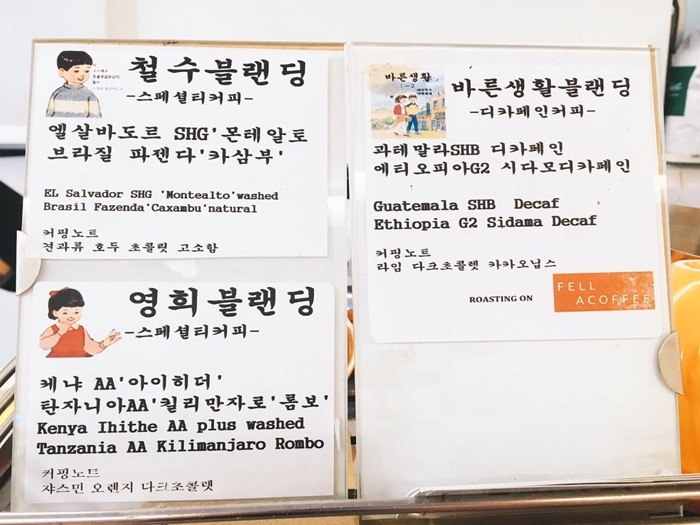 철수블랜딩
-스페셜티커피-
엘살바도르 SHG'몬테알토
브라질 파젠다'카삼부'
EL Salvador SHG 'Montealto'washed
Brasil Fazenda'Caxambu'natural
커핑노트
견과류 호두 초콜릿 고소함
영희블랜딩
-스페셜티커피-
케냐 AA'아이히더'
탄자니아AA'킬리만자로'롬보'
Kenya Ihithe AA plus washed
Tanzania AA Kilimanjaro Rombo
커핑노트
쟈스민 오렌지 다크초콜렛
바른생활
1-2
바른생활블랜딩
-디카페인커피-
과테말라SHB 디카페인
에티오피아G2 시다모디카페인
Guatemala SHB Decaf
Ethiopia G2 Sidama Decaf
커핑노트
라임 다크초콜렛 카카오닙스
ROASTING ON
FELL
ACOFFEE